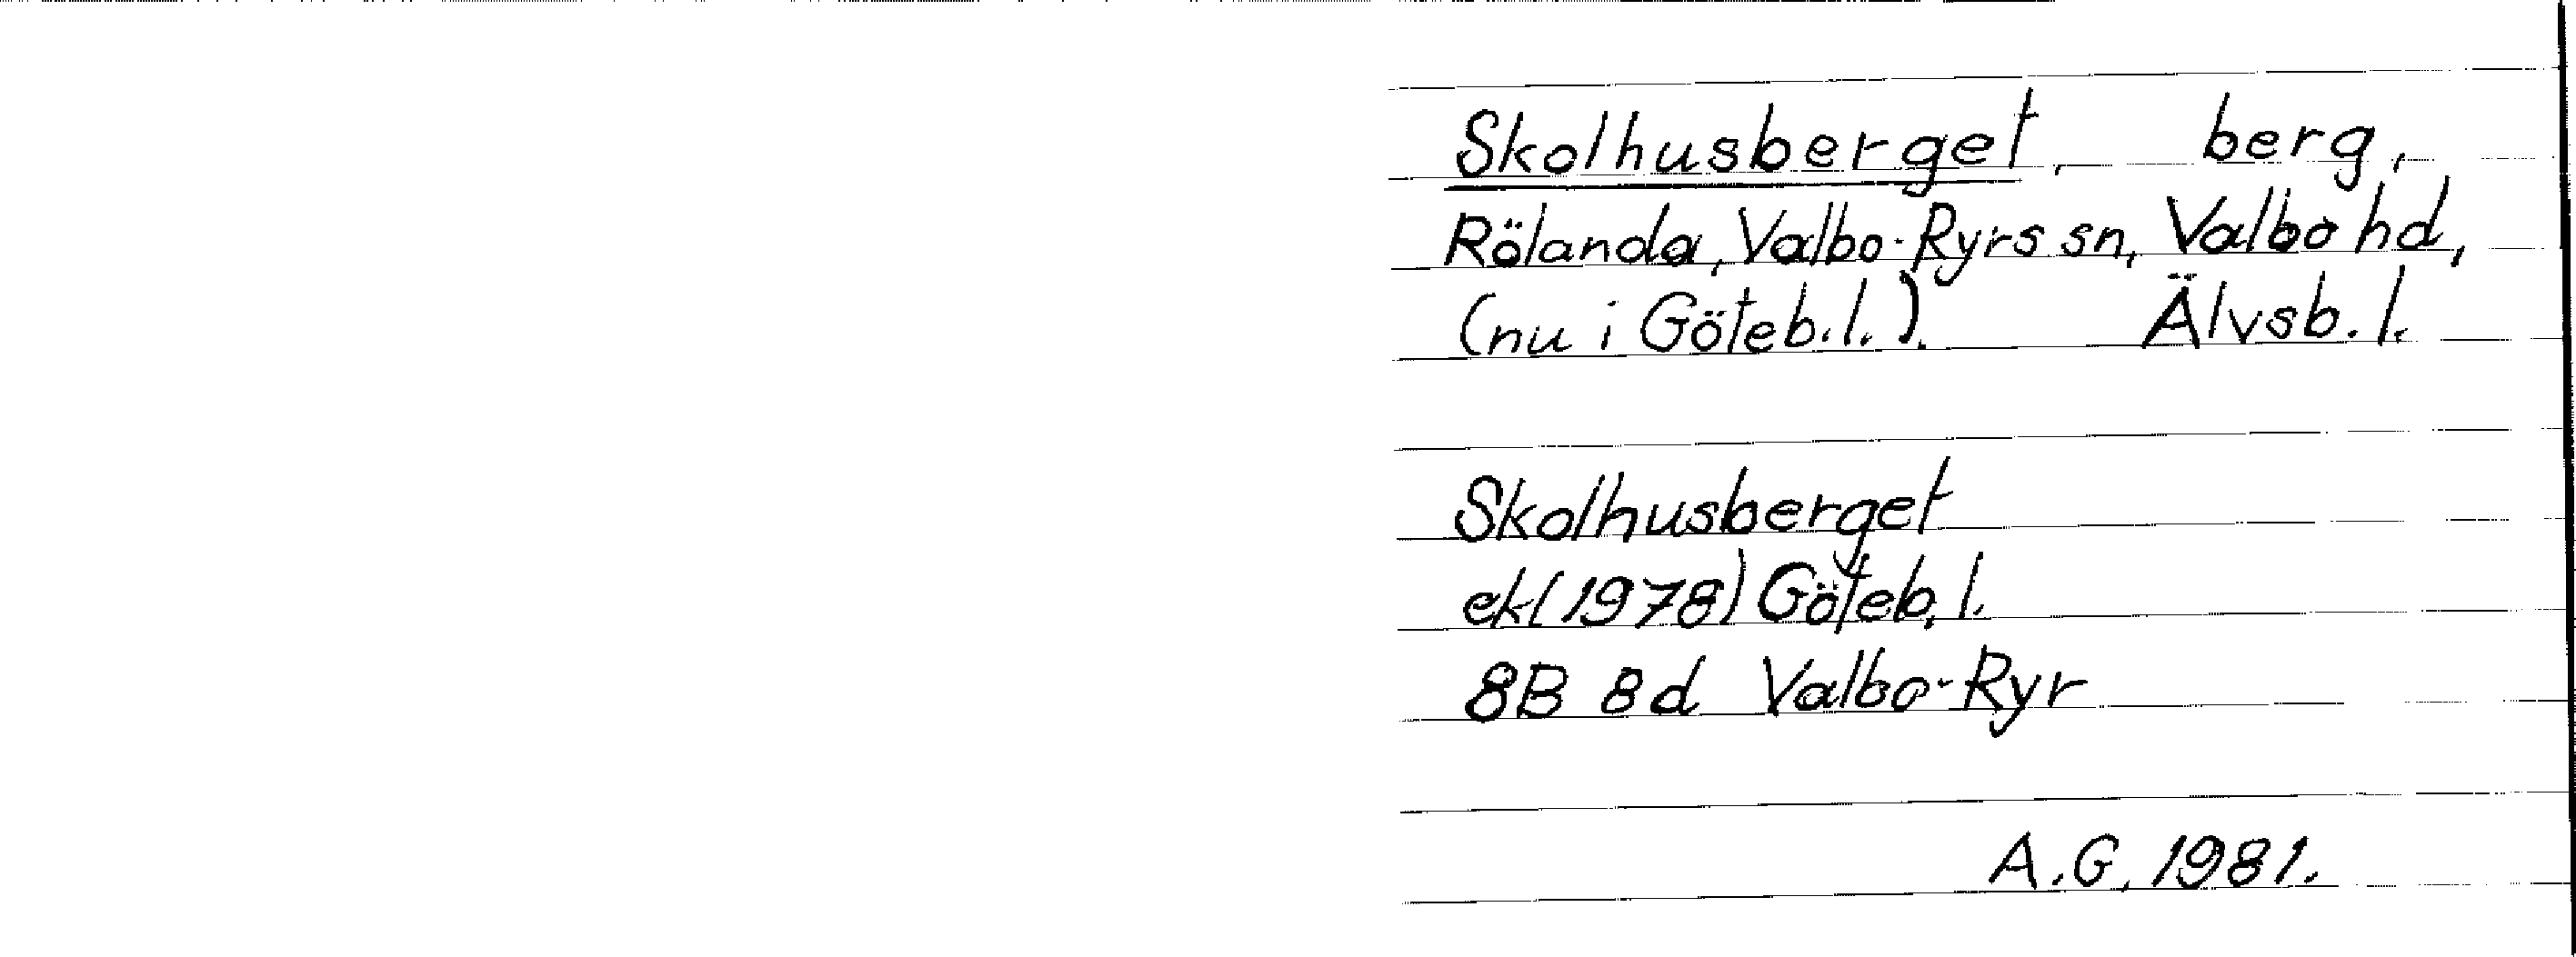 Skolhusberget, berg,
Rölanda, Valbo-Ryrs sn, Valbo hd,
(nu i Göteb.l.). Älvsb.l.
Skolhusberget
ek (1978) Göteb.l.
8B 8d Valbo-Ryr
A.G. 1981.